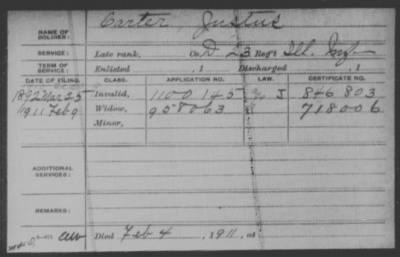 Carter, Justus
NAME OF SOLDIER:
SERVICE: Late rank, Co. D 23 Reg't Ill. Inf.
TERM OF SERVICE: Enlisted , 1 Discharged , 1
DATE OF FILING. CLASS. APPLICATION NO. LAW. CERTIFICATE NO.
1892 Mar 25 Invalid, 1100 145 J 846 803
1911 Feb 9 Widow, 958063 718006
Minor,
ADDITIONAL SERVICES:
REMARKS:
Died Feb 4, 1911, at